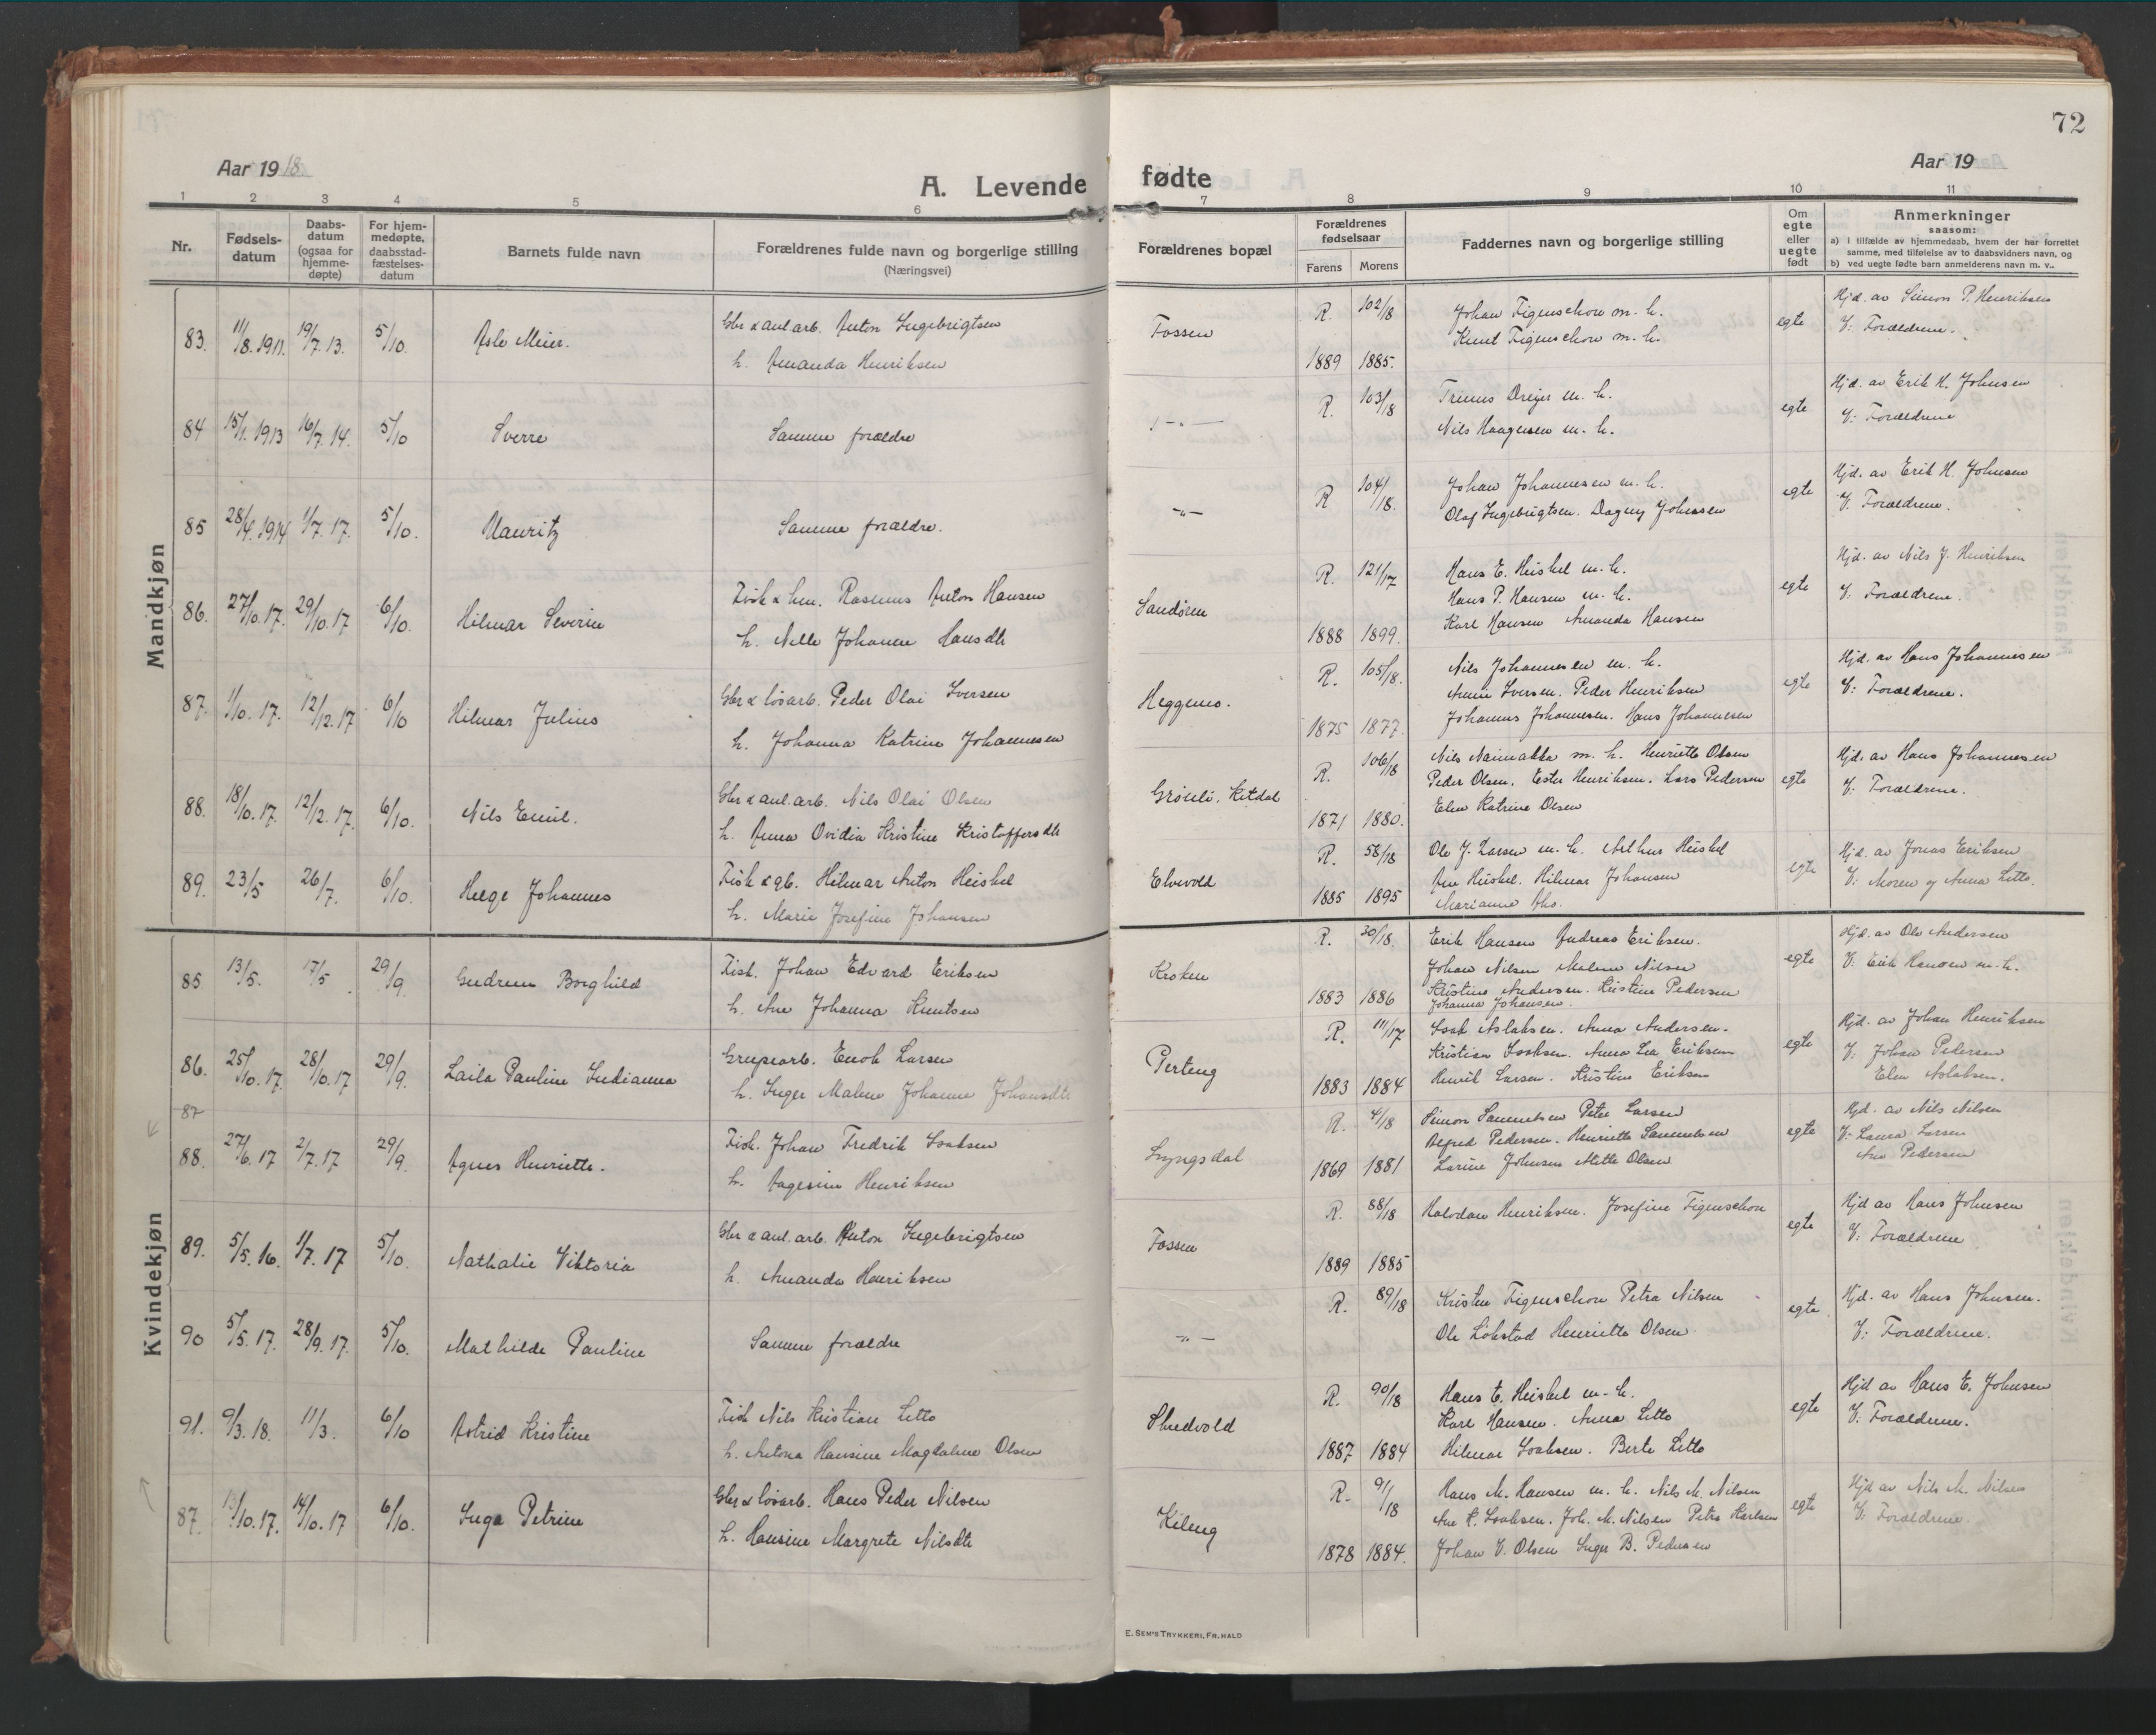 72
Aar 1918.
A. Levende fødte
Aar 19
1 2 3 4 5 6 7 8 9 10 11
Nr.
Fødsels-
datum
Daabs-
datum
(ogsaa for
hjemme-
døpte)
For hjem-
medøpte,
daabsstad-
fæstelses-
datum
Barnets fulde navn
Forældrenes fulde navn og borgerlige stilling
(Næringsvei)
Forældrenes bopæl
Forældrenes
fødselsaar
Farens Morens
Faddernes navn og borgerlige stilling
Om
egte
eller
uegte
født
Anmerkninger
saasom:
a) I tilfælde av hjemmedaab, hvem der har forrettet
samme, med tilføielse av to daabsvidners navn, og
b) ved uegte fødte barn anmelderens navn m. v..
Mandkjøn
83. 11/8. 1911. 19/7. 13. 5/10. Asle Meier.
Gbr & anl. arb. Anton Ingebrigtsen
h. Amanda Henriksen
Fossen
R. 102/18
1889 1885.
Johan Figenschou m. h.
Knut Figenschou m. h.
egte
Hjd. av Simon P. Henriksen
V: Forældrene.
84 15/1. 1913 16/7. 14. 5/10 Sverre
Samme forældre
—„—
R. 103/18
Trinus Dreyer m. h.
Nils Haagensen m. h.
egte
Hjd. av Erik H. Johnsen
V: Forældrene
85 28/4. 1914 1/7. 17. 5/10. Mauritz
Samme forældre.
—„—
R 104/18.
Johan Johannesen m. h.
Olaf Ingebrigtsen. Dagny Johnsen
egte
Hjd. av Erik H. Johnsen
V. Forældrene.
86. 27/10. 17. 29/10. 17 6/10. Hilmar Severin
Fisk & hm. Rasmus Anton Hansen
h. Nelle Johanne Hansdtr
Sandøren
R. 121/17
1888 1899.
Hans E. Heiskel m. h.
Hans P. Hansen m. h.
Karl Hansen Amanda Hansen
egte
Hjd. av Nils J. Henriksen
V. Forældrene.
87. 1/10. 17. 12/12. 17 6/10 Hilmar Julius
Gbr & løsarb. Peder Olai Iversen
h. Johanna Katrine Johannesen
Heggenes.
R. 105/18.
1875 1877.
Nils Johannesen m. h.
Anna Iversen. Peder Henriksen
Johannes Johannesen. Hans Johannesen
egte
Hjd. av Hans Johannesen
V: Forældrene.
88. 18/10. 17. 12/12. 17. 6/10. Nils Emil.
Gbr & anl. arb. Nils Olai Olsen
h. Anna Ovidia Kristine Kristoffersdtr
Grønli, Kitdal
R. 106/18
1871 1880.
Nils Naimakka m. h. Henriette Olsen
Peder Olsen. Ester Henriksen. Lars Pedersen
Elen Katrine Olsen
egte
Hjd. av Hans Johannesen
V: Forældrene.
89. 23/5 26/7. 6/10. Helge Johannes
Fisk & gb. Hilmar Anton Heiskel
h. Marie Josefine Johansen
Elvevold
R. 58/18
1885 1895
Ole J. Larsen m. h. Arthur Heiskel
Ane Heiskel. Hilmar Johansen
Marianne
egte
Hjd. av Jonas Eriksen
V: Moren og Anna Litto.
Kvindekjøn
85 13/5. 17/5 29/9. Gudrun Borghild
Fisk. Johan Edvard Eriksen
h. Ane Johanna Knutsen
Kroken
R. 30/18.
1883 1886
Erik Hansen Andreas Eriksen.
Johan Nilsen Malene Nilsen
Kristine Andersen. Kristine Pedersen
Johanna Johansen.
egte
Hjd. av Ole Andersen
V. Erik Hansen m. h.
86. 25/10. 17. 28/10. 17 29/9. Laila Pauline Indianna
Grupearb. Enok Larsen
h. Inger Malene Johanne Johansdtr
Perteng
R. 111/17
1883 1884
Isak Aslaksen. Anna Andersen.
Kristian Isaksen. Anna Lea Eriksen
Henrik Larsen. Kristine Eriksen
egte
Hjd. av Johan Henriksen
V: Johan Pedersen
Elen Aslaksen.
87
88. 27/6. 17 2/7. 17 29/9. Agnes Henriette.
Fisk. Johan Fredrik Isaksen
h. Aagesine Henriksen
Lyngsdal
R. 4/18
1869 1881
Simon Samuelsen Peter Larsen
Alfred Pedersen. Henriette Samuelsen
Larine Johnsen Mette Olsen
egte
Hjd. av Nils Nilsen
V: Laura Larsen
Ane Pedersen
89. 5/5. 16. 1/7. 17 5/10. Nathalie Viktoria
Gbr & anl. arb. Anton Ingebrigtsen
h. Amanda Henriksen
Fossen
R. 88/18
1889 1885
Halvdan Henriksen. Josefine Figenschou
egte
Hjd av Hans Johnsen
V: Forældrene
90 5/5. 17. 28/9. 17. 5/10. Mathilde Pauline
Samme forældre
—„—
R. 89/18
Kristen Figenschou Petra Nilsen
Ole Løkstad Henriette Olsen.
egte
Hjd. av Hans Johnsen.
V: Forældrene.
91. 9/3. 18. 11/3. 6/10 Astrid Kristine
Fisk Nils Kristian Litto
h. Antona Hansine Magdalene Olsen
Skredvold
R. 90/18
1887 1884
Hans E. Heiskel m. h.
Karl Hansen. Anna Litto
Hilmar Isaksen. Berte Litto
egte
Hjd av Hans E. Johnsen
V: Forældrene.
87. 13/10. 17. 14/10. 17 6/10. Inga Petrine
Gbr & løsarb. Hans Peder Nilsen
h. Hansine Margrete Nilsdtr
Kileng
R. 9/18
1878 1884.
Hans M. Hansen m. h. Nils M. Nilsen
Ane K. Isaksen. Joh. M. Nilsen Petra Karlsen
Johan V. Olsen Inger B. Pedersen
egte
Hjd av Nils M. Nilsen
V: Forældrene.
E. SEM'S TRYKKERI, FR. HALD